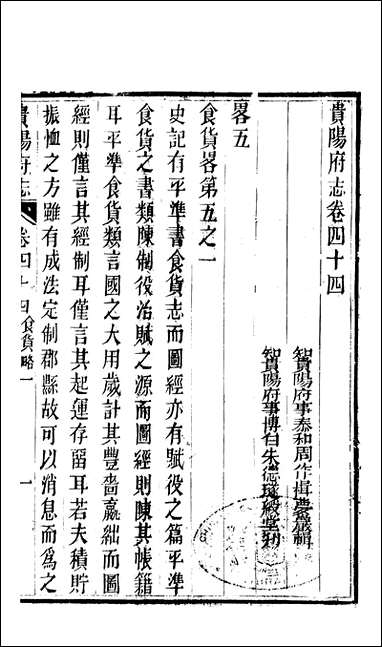 貴陽府志卷四十四
知貴陽府事泰和周作楫農盛輯
知貴陽府事博白朱德璲毅堂刊
畧五
食貨畧第五之一
史記有平準書食貨志而圖經亦有賦役之篇平準
食貨之書類陳制役治賦之源而圖經則陳其帳籍
耳平準食貨類言國之大用歲計其豐嗇贏絀而圖
經則僅言其經制耳僅言其起運存留耳若夫積貯
振恤之方雖有成法定制郡縣故可以消息而為之
貴陽府志 卷四十四 食貨略一 一